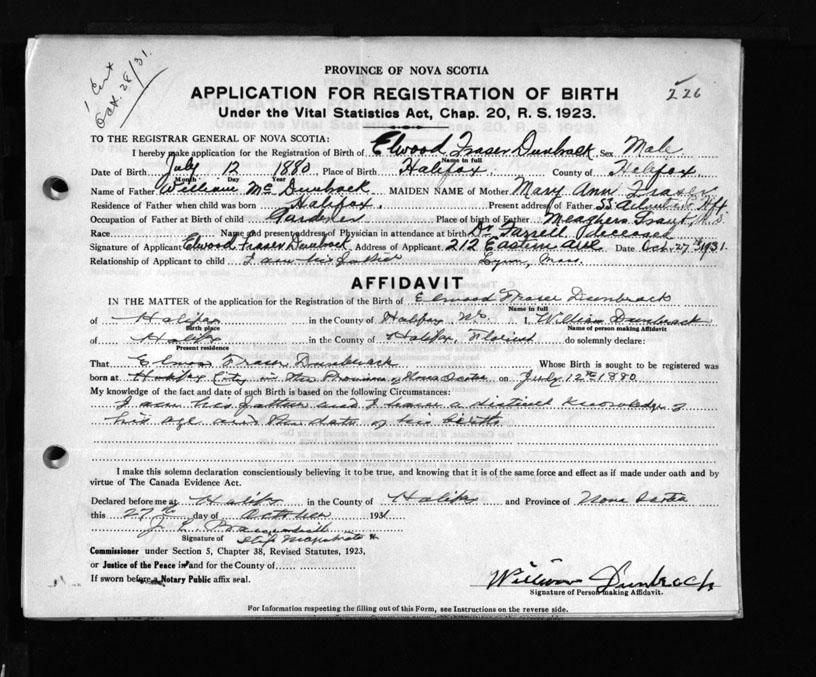 1 Cert
Oct. 28/31.
226
PROVINCE OF NOVA SCOTIA
APPLICATION FOR REGISTRATION OF BIRTH
Under the Vital Statistics Act, Chap. 20, R. S. 1923.
TO THE REGISTRAR GENERAL OF NOVA SCOTIA:
I hereby make application for the Registration of Birth of Elwood Fraser Dunbrack Sex Male
Name in full
Date of Birth July 12 1880 Place of Birth Halifax County of Halifax
Month Day Year
Name of Father William Mc Dunbrack MAIDEN NAME of Mother Mary Ann Fraser
Residence of Father when child was born Halifax. Present address of Father 55 Hfx
Occupation of Father at Birth of child Gardener Place of birth of Father Meaghers Grant, N.S.
Race Name and present address of Physician in attendance at birth Dr. Farrell deceased
Signature of Applicant Elwood Fraser Dunbrack Address of Applicant 212 Eastern Ave Date Oct. 27th 1931.
Relationship of Applicant to child I am his father Lynn, Mass.
AFFIDAVIT
IN THE MATTER of the application for the Registration of the Birth of Elwood Fraser Dunbrack
Name in full
of Halifax in the County of Halifax I, William Dunbrack
Birth place Name of person making Affidavit
of Halifax in the County of Halifax, do solemnly declare:
Present residence
That Fraser Dunbrack Whose Birth is sought to be registered was
born at Halifax City in the Province of Nova Scotia on July 12th 1880
My knowledge of the fact and date of such Birth is based on the following Circumstances:
I am his father and I have a distinct knowledge of
his age and the date of his birth
I make this solemn declaration conscientiously believing it to be true, and knowing that it is of the same force and effect as if made under oath and by
virtue of The Canada Evidence Act.
Declared before me at Halifax in the County of Halifax and Province of Nova Scotia
this 27th day of October 1931
Signature of Stip Magistrate
Commissioner under Section 5, Chapter 38, Revised Statutes, 1923,
or Justice of the Peace in and for the County of
If sworn before a Notary Public affix seal.
William Dunbrack
Signature of Person making Affidavit.
For Information respecting the filling out of this Form, see Instructions on the reverse side.